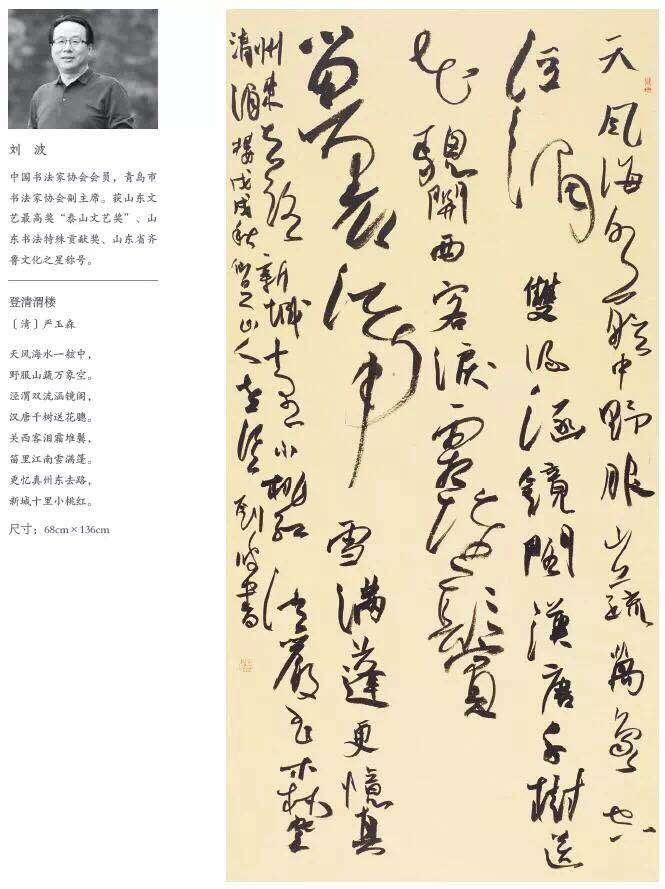 刘 波
中国书法家协会会员，青岛市
书法家协会副主席。获山东文
艺最高奖“泰山文艺奖”、山
东书法特殊贡献奖、山东省齐
鲁文化之星称号。
登清渭楼
〔清〕严玉森
天风海水一舷中，
野服山蔬万象空。
泾渭双流涵镜阔，
汉唐千树送花骢。
关西客泪霜堆鬓，
笛里江南雪满篷。
更忆真州东去路，
新城十里小桃红。
尺寸：68cm×136cm
天風海水一舷中野服山蔬萬象空
涇渭雙流涵鏡闊漢唐千樹送
花驄關西客淚霜堆鬢
笛裏江南雪滿蓬更憶真
州東去路新城十里小桃紅清嚴玉森登
清渭樓戊戌秋 山人 劉波書